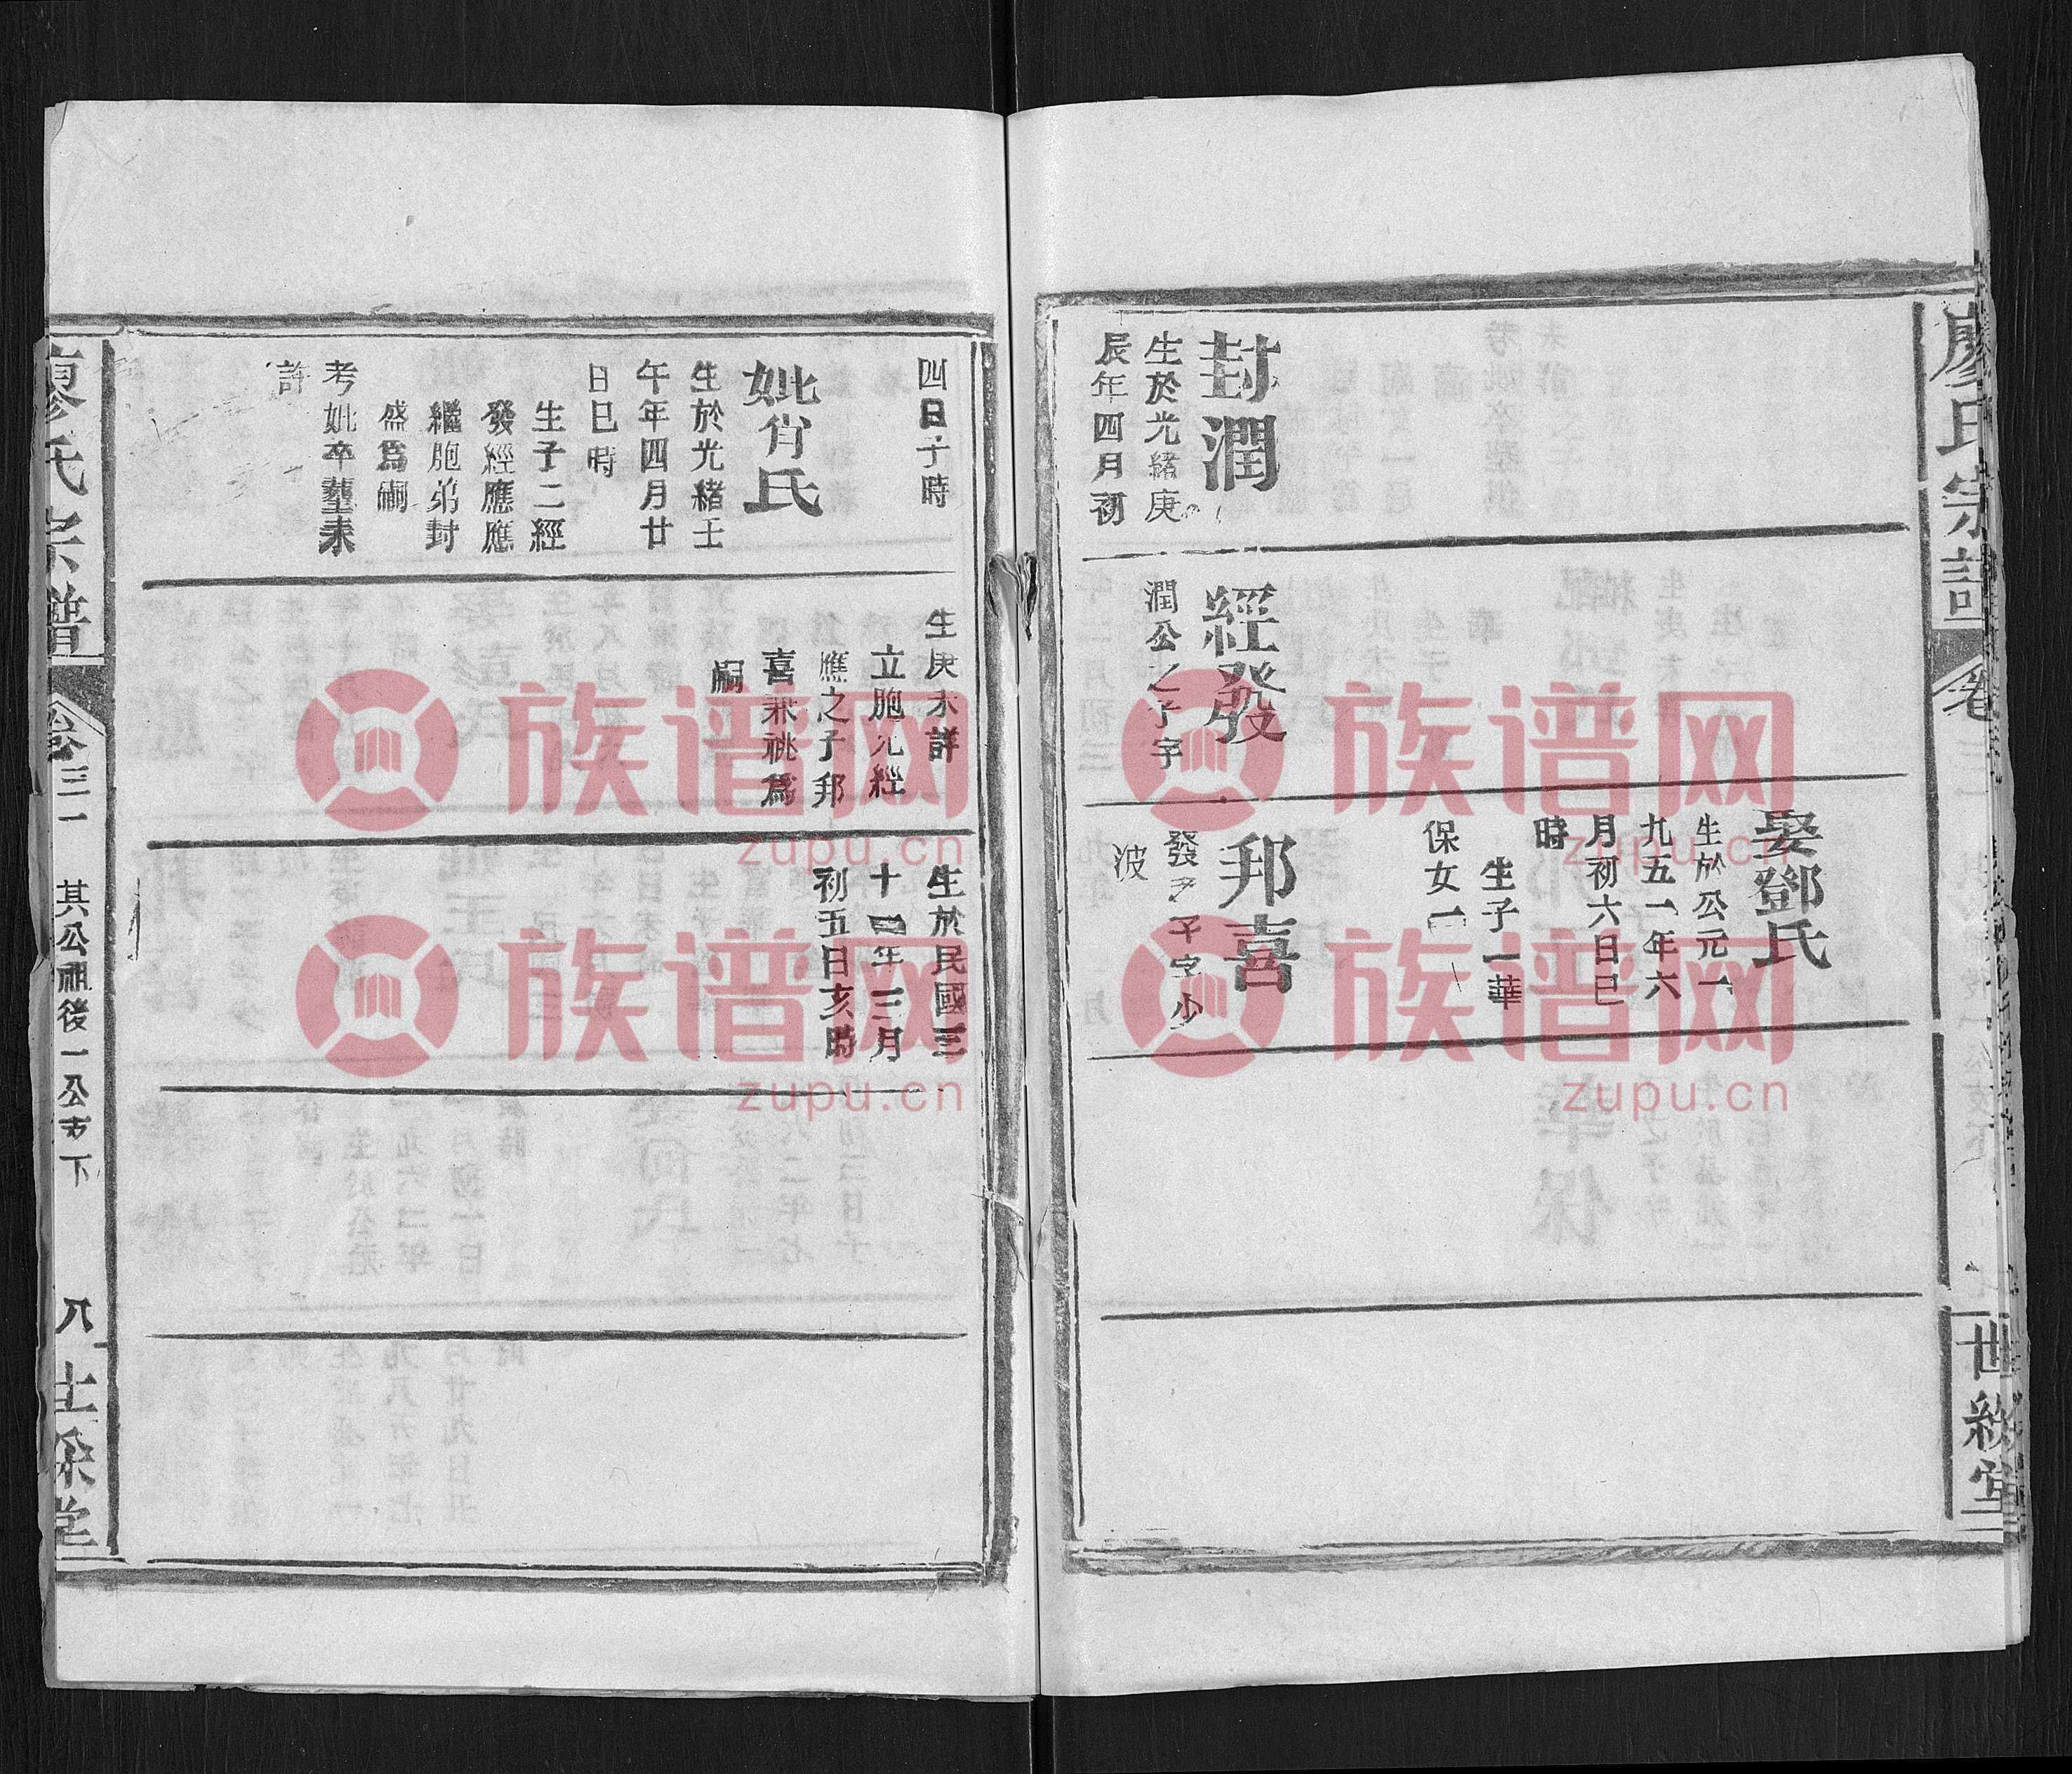 廖氏宗譜
卷
世綵堂
封潤
生於光緒庚
辰年四月初
經發
潤公之子字
娶鄧氏
生於公元一
九五一年六
月初六日巳
時
生子一華
保女一
邦喜
發之子字少
波
四日子時
妣肖氏
生於光緒壬
午年四月廿
日巳時
生子二經
發經應應
繼胞弟封
盛爲嗣
考妣卒塟未
詳
生庚未詳
立胞兄經
應之子邦
喜兼祧爲
嗣
生於民國三
十四年三月
初五日亥時
廖氏宗譜
卷三一
其公祖後一公支下
八
世綵堂
族谱网
zupu.cn
族谱网
zupu.cn
族谱网
zupu.cn
族谱网
zupu.cn